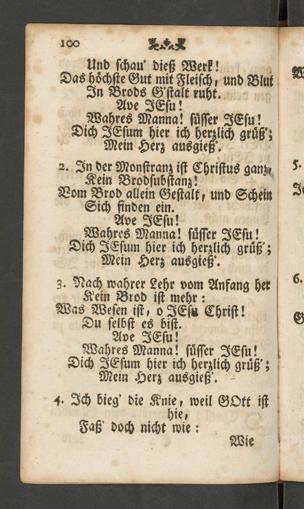 100
Und schau' dieß Werk!
Das höchste Gut mit Fleisch, und Blut
In Brods G'stalt ruht.
Ave JEsu!
Wahres Manna! süsser JEsu!
Dich JEsum hier ich herzlich grüß';
Mein Herz ausgieß'.
2. In der Monstranz ist Christus ganz,
Kein Brodsubstanz!
Vom Brod allein Gestalt, und Schein
Sich finden ein.
Ave JEsu!
Wahres Manna! süsser JEsu!
Dich JEsum hier ich herzlich grüß';
Mein Herz ausgieß'.
3. Nach wahrer Lehr vom Anfang her
Kein Brod ist mehr:
Was Wesen ist, o JESu Christ!
Du selbst es bist.
Ave JEsu!
Wahres Manna! süsser JEsu!
Dich JEsum hier ich herzlich grüß';
Mein Herz ausgieß'.
4. Ich bieg' die Knie, weil GOtt ist
hie,
Faß' doch nicht wie:
Wie
5.
6.